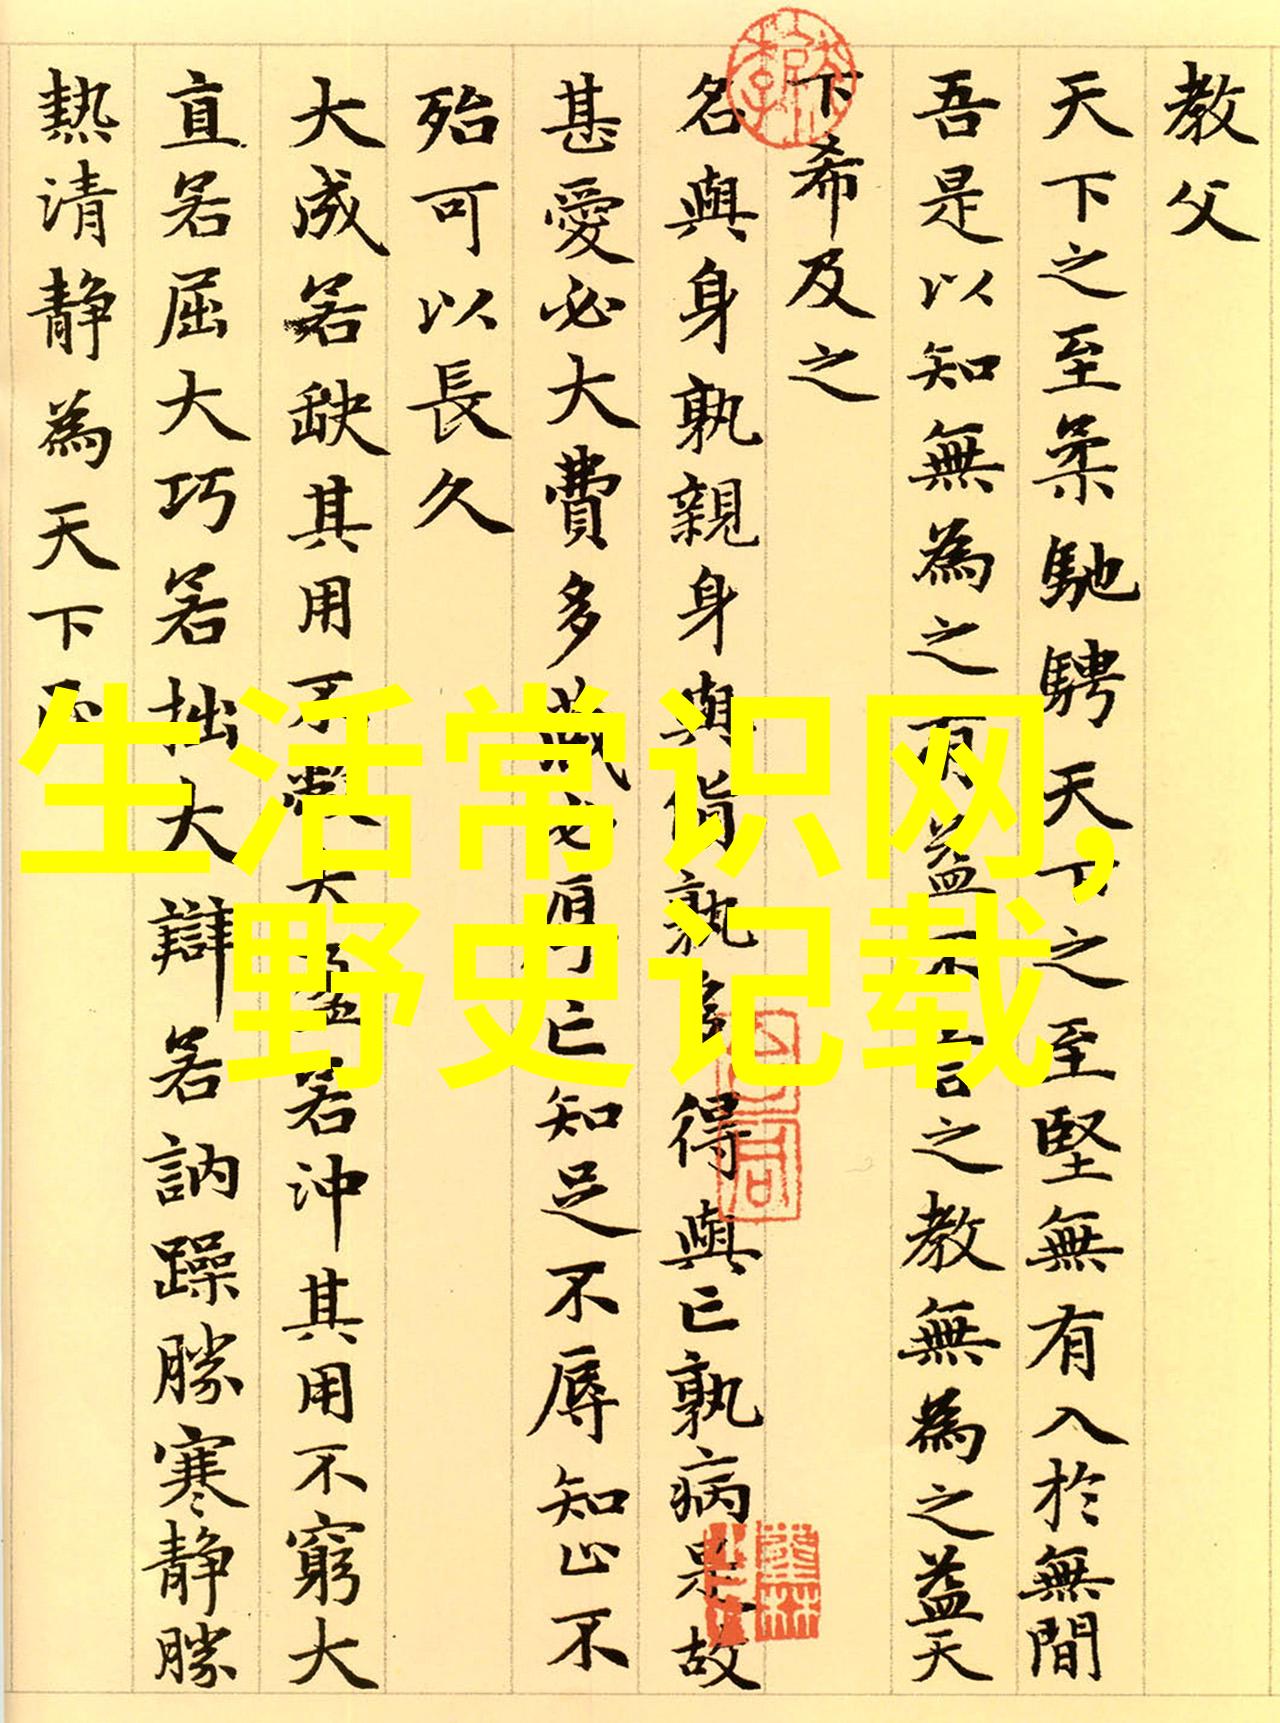 教父
天下之至柔馳騁天下之至堅無有入於無間
吾是以知無為之有益不言之教無為之益天
下希及之
名與身孰親身與貨孰多得與亡孰病是故
甚愛必大費多藏必厚亡知足不辱知止不
殆可以長久
大成若缺其用不弊大盈若沖其用不窮大
直若屈大巧若拙大辯若訥躁勝寒静勝
熱清静為天下正
生活常识网,
野史记载